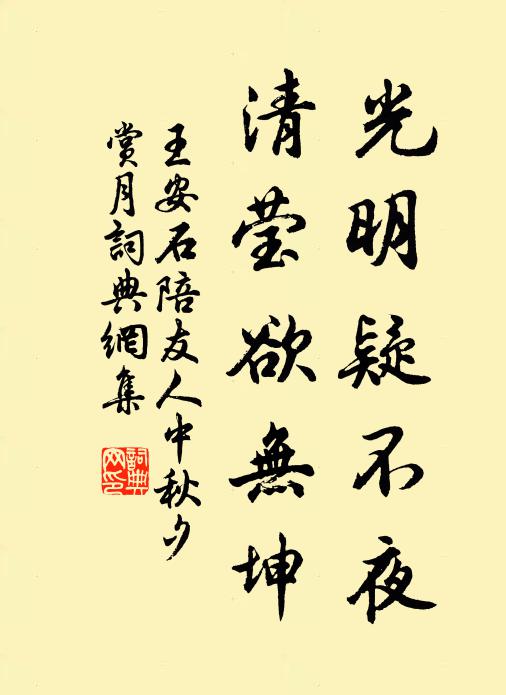 光明疑不夜
清莹欲無坤
王安石陪友人中秋夕
赏月詞典網集
詞典
网印